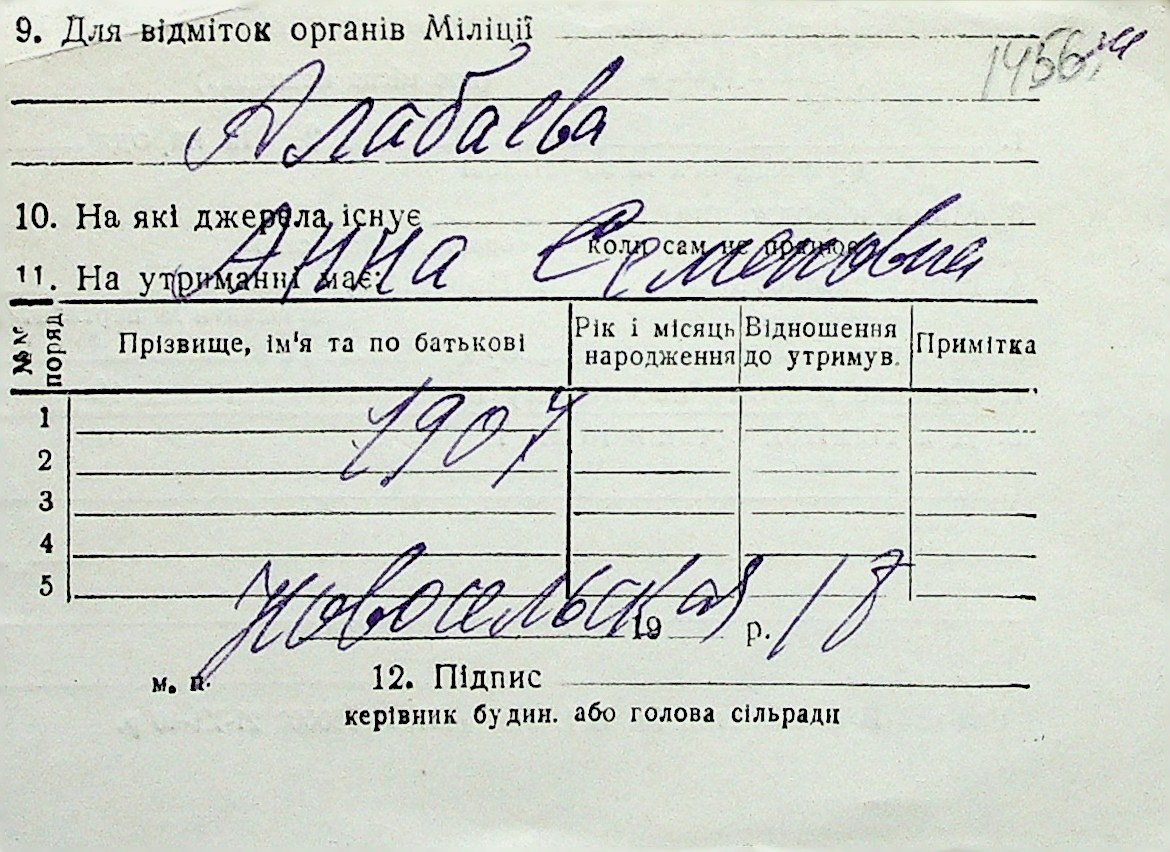 9. Для відміток органів Міліції
1456
Алабаева
10. На які джерела існує
коли сам не працює
Анна Семеновна
11. На утриманні має:
№№ поряд. Прізвище, ім'я та по батькові Рік і місяць народження Відношення до утримув. Примітка
1
1907
2
3
4
5
Новосельская 18
19 р.
м. п.
12. Підпис
керівник будин. або голова сільради